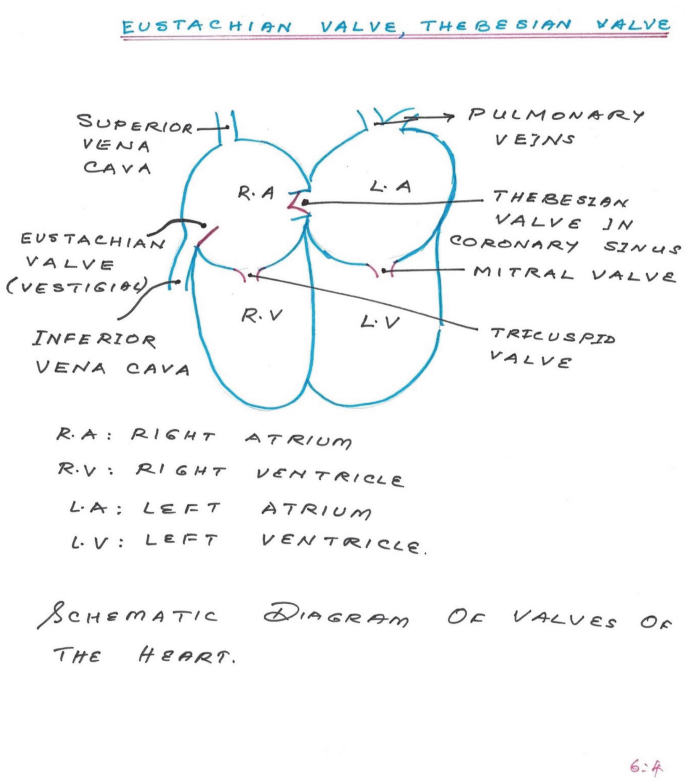 EUSTACHIAN VALVE, THEBESIAN VALVE
SUPERIOR
VENA
CAVA
PULMONARY
VEINS
R.A
L.A
THEBESIAN
VALVE IN
CORONARY SINUS
EUSTACHIAN
VALVE
(VESTIGIAL)
MITRAL VALVE
R.V
L.V
TRICUSPID
VALVE
INFERIOR
VENA CAVA
R.A: RIGHT ATRIUM
R.V: RIGHT VENTRICLE
L.A: LEFT ATRIUM
L.V: LEFT VENTRICLE.
SCHEMATIC DIAGRAM OF VALVES OF
THE HEART.
6:4